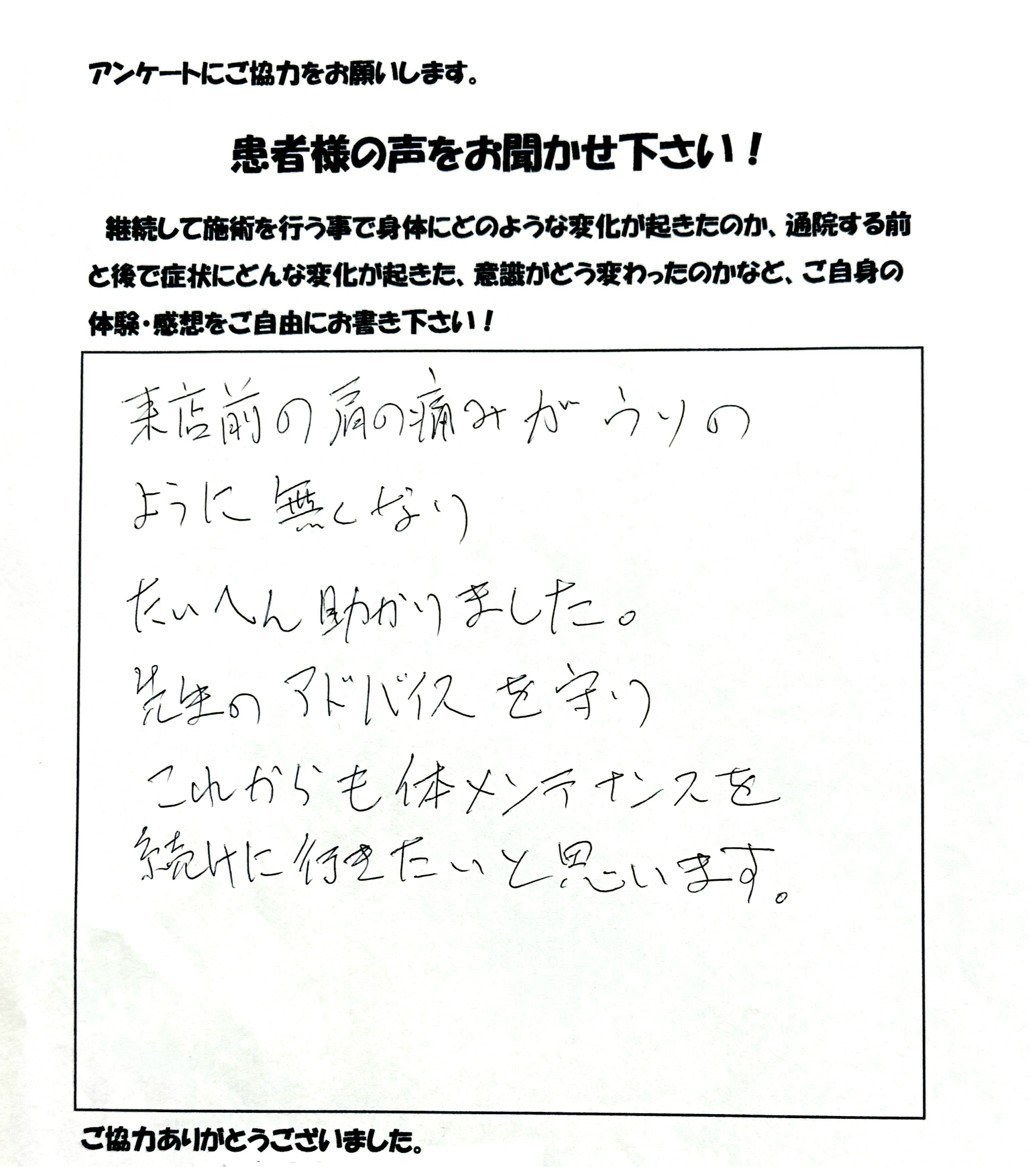 アンケートにご協力をお願いします。
患者様の声をお聞かせ下さい！
継続して施術を行う事で身体にどのような変化が起きたのか、通院する前
と後で症状にどんな変化が起きた、意識がどう変わったのかなど、ご自身の
体験・感想をご自由にお書き下さい！
来店前の肩の痛みがウソの
ように無くなり
たいへん助かりました。
先生のアドバイスを守り
これからも体メンテナンスを
続けに行きたいと思います。
ご協力ありがとうございました。